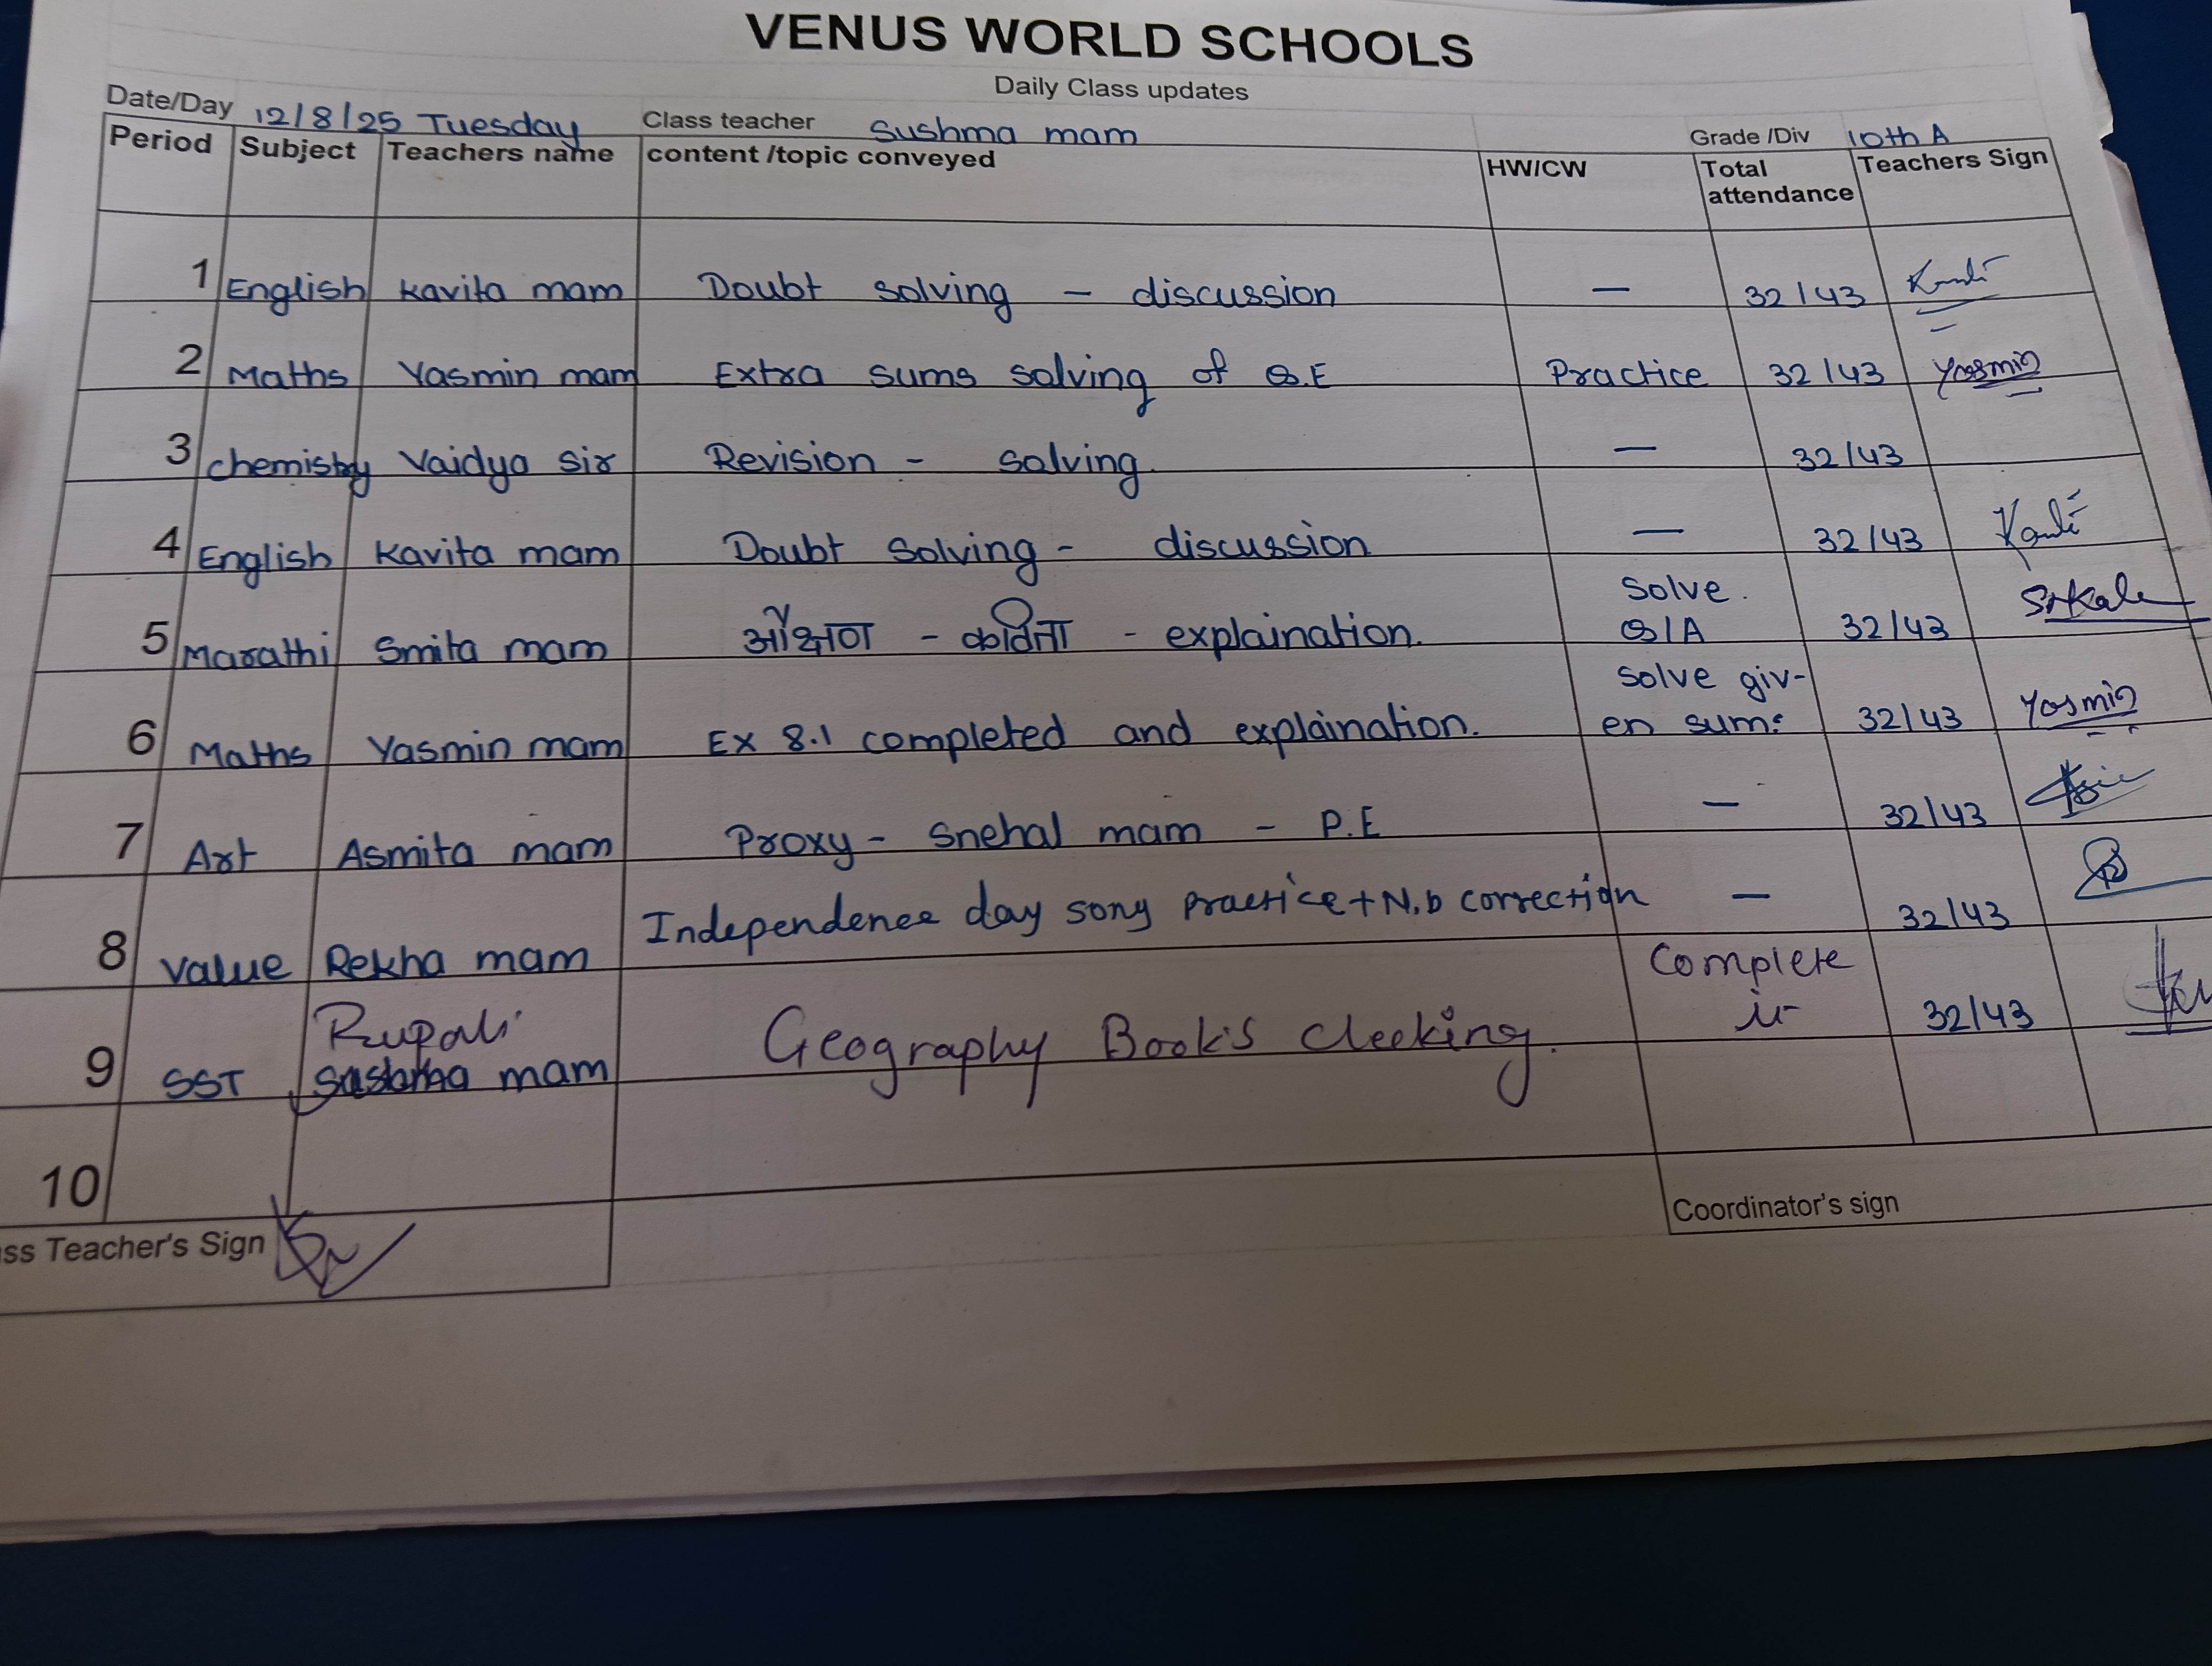 VENUS WORLD SCHOOLS
Daily Class updates
Date/Day 12/8/25 Tuesday Class teacher Sushma mam Grade /Div 10th A
Period Subject Teachers name content /topic conveyed HW/CW Total attendance Teachers Sign
1 English Kavita mam Doubt solving - discussion — 32/43
2 Maths Yasmin mam Extra sums solving of Q.E Practice 32/43 Yasmin
3 chemistry Vaidya sir Revision - solving — 32/43
4 English Kavita mam Doubt solving - discussion — 32/43
5 Marathi Smita mam औक्षण - कविता - explaination. Solve Q/A 32/43
6 Maths Yasmin mam Ex 8.1 completed and explaination. solve giv-en sum: 32/43 Yasmin
7 Art Asmita mam Proxy - Snehal mam - P.E — 32/43
8 value Rekha mam Independence day song practice + N.b correction — 32/43
9 SST Rupali mam Geography Book's checking. Complete it 32/43
10
ss Teacher's Sign
Coordinator's sign